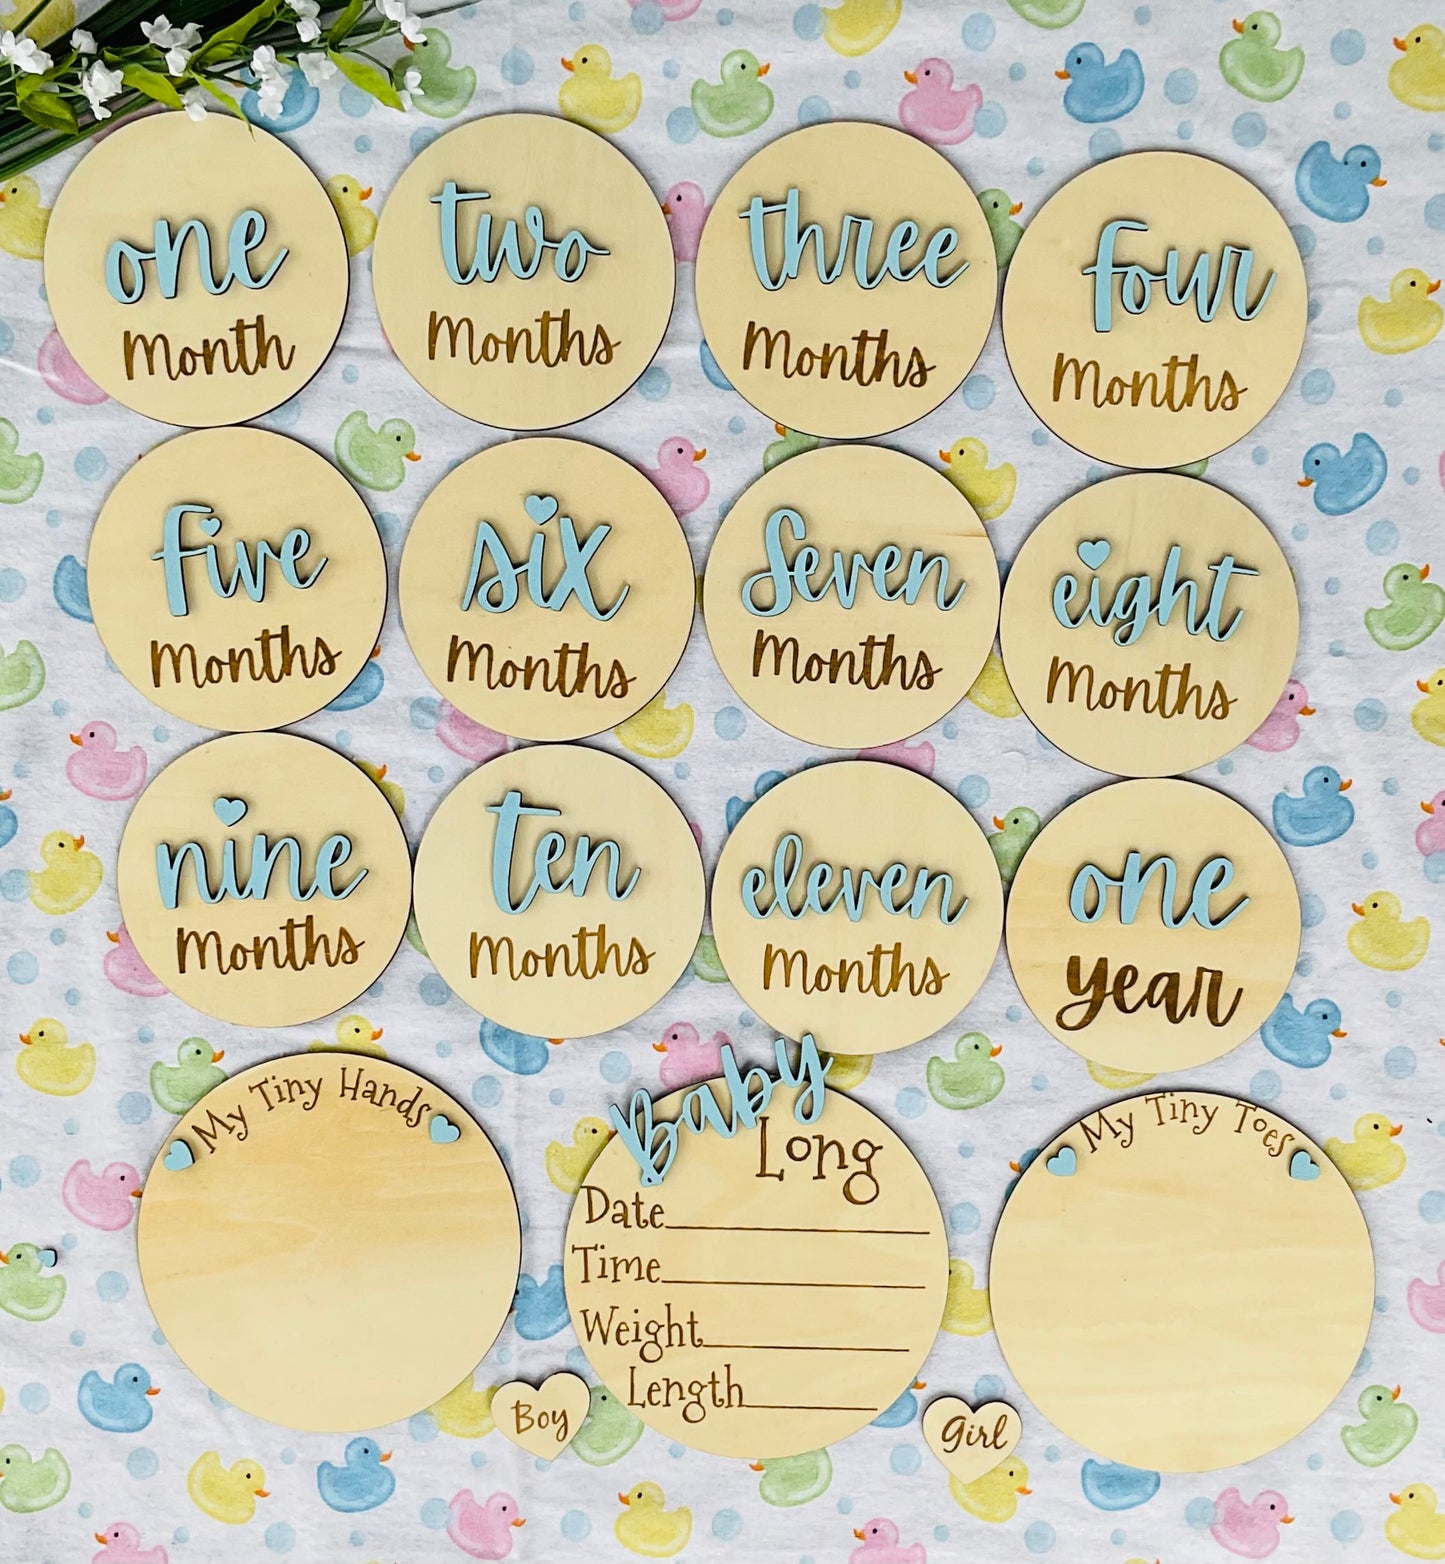 one
Month
two
Months
three
Months
four
Months
five
Months
six
Months
Seven
Months
eight
Months
nine
Months
ten
Months
eleven
Months
one
year
My Tiny Hands
Baby
Long
Date
Time
Weight
Length
My Tiny Toes
Boy
Girl